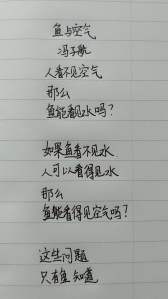 鱼与空气
冯子航
人看不见空气
那么
鱼能看见水吗？
如果鱼看不见水
人可以看得见水
那么
鱼能看得见空气吗？
这些问题
只有鱼知道